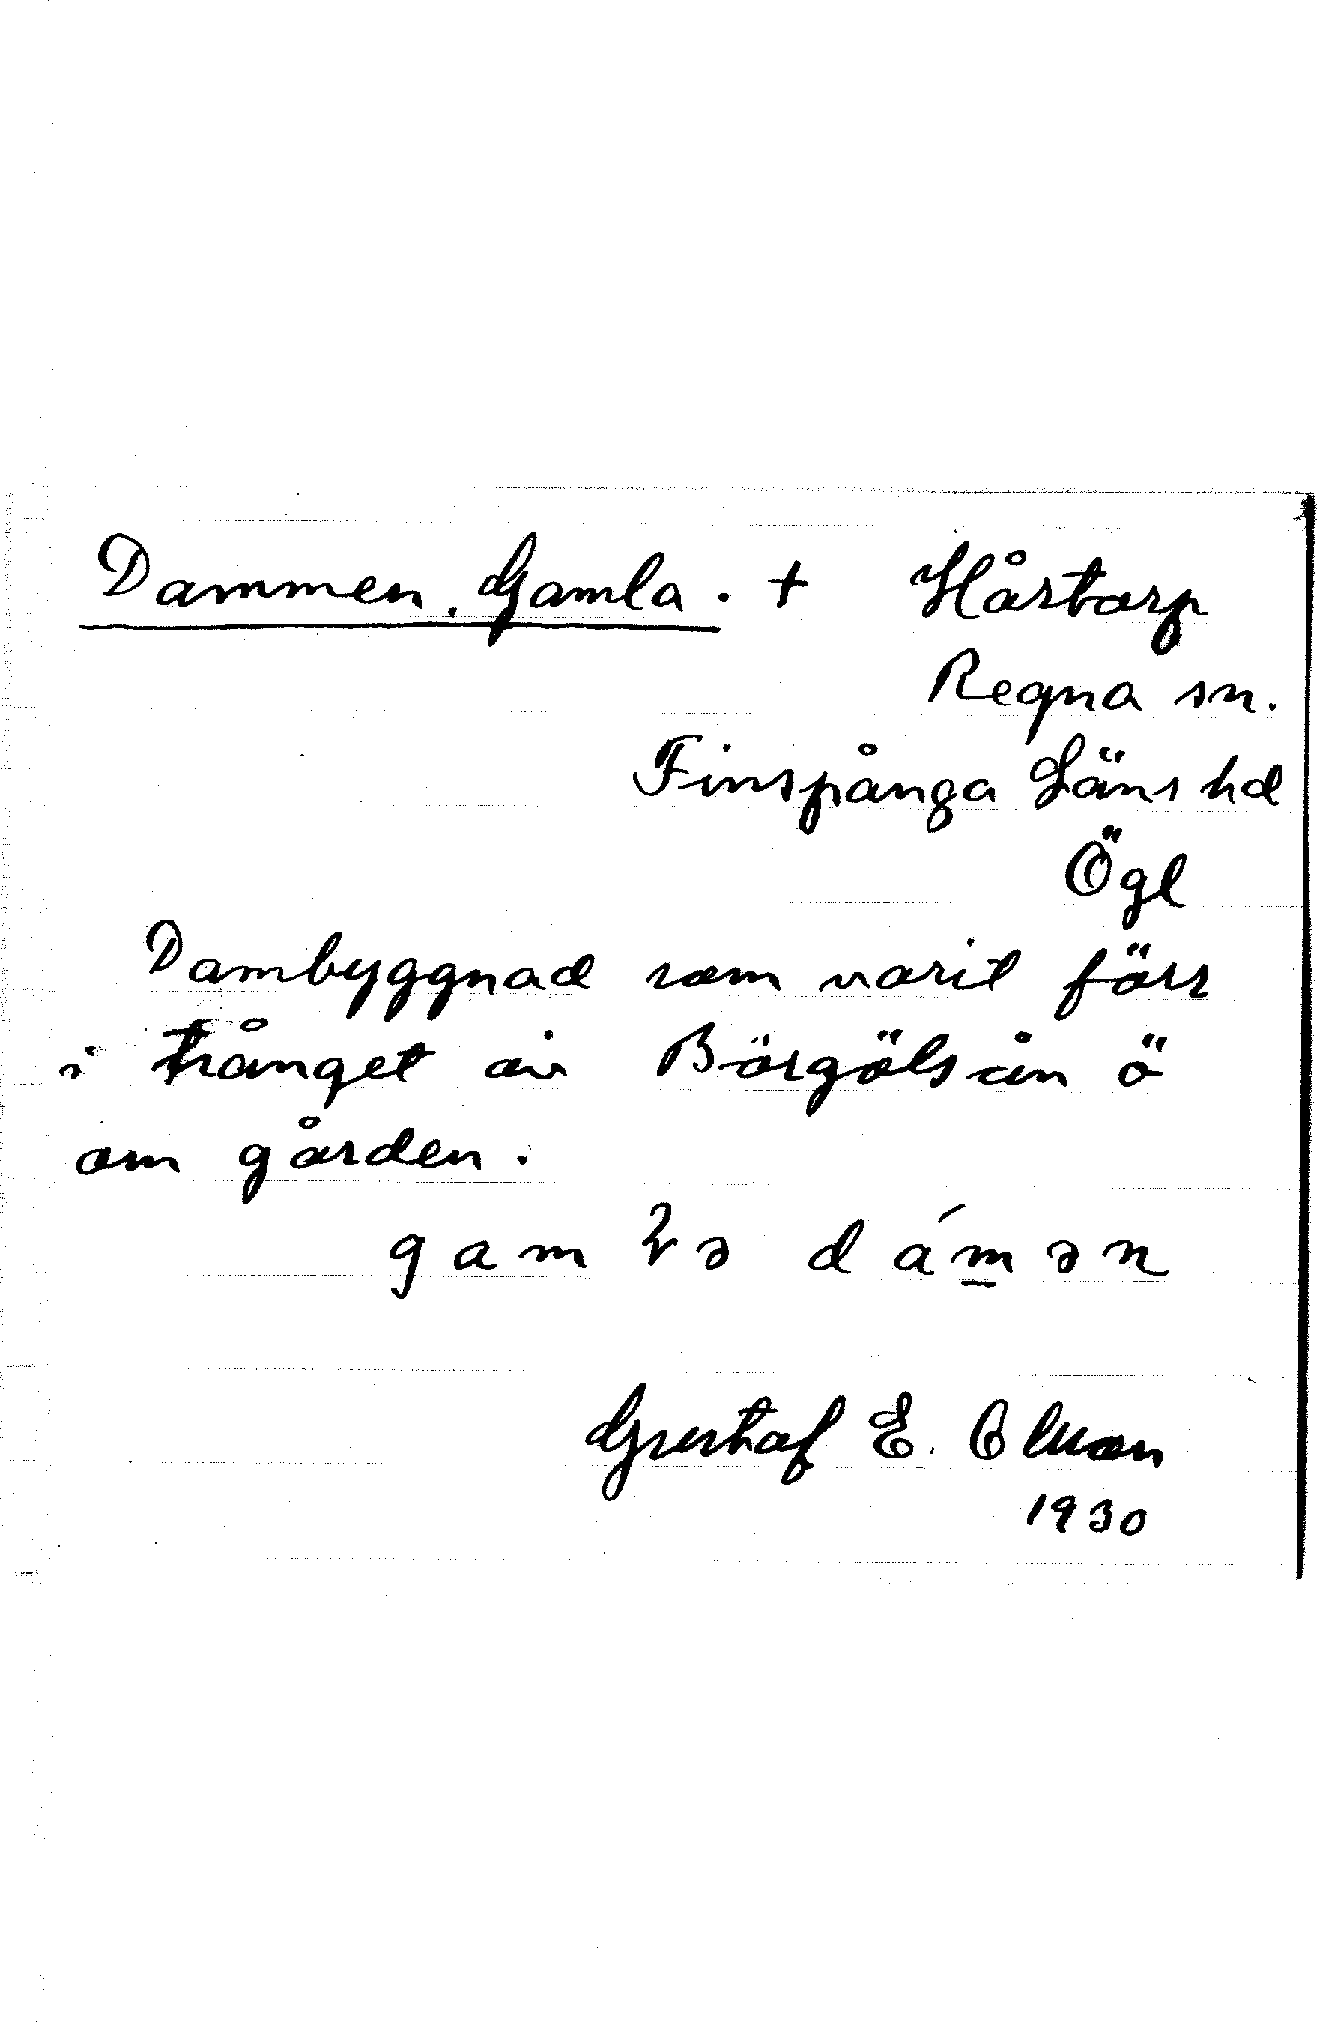 Dammen, Gamla. + Hårtorp
Regna sn.
Finspånga Läns hd
Ögl
Dambyggnad som varit förr
i trånget av Börgölsån ö
om gården.
gamɭə dámən
Gustaf E. Olsson
1930